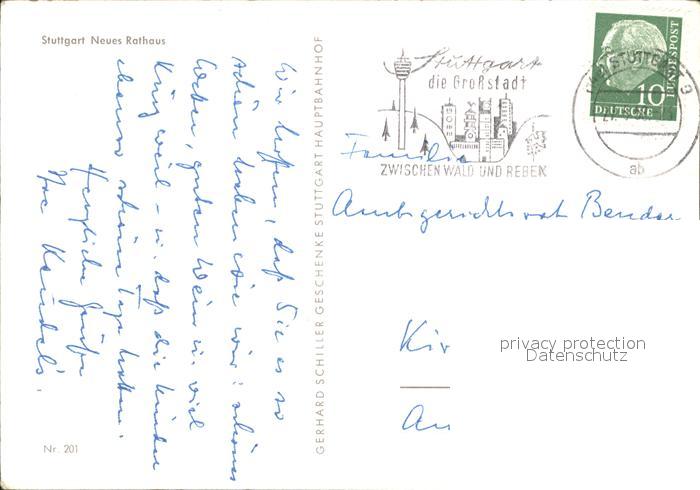 Stuttgart Neues Rathaus
Wir hoffen, daß Sie es so
schön haben wie wir: schönes
Wetter, guten Wein u. viel
Kurzweil - u. daß die Kinder
ebenso schöne Tage hatten.
Herzliche Grüße
Ihre
Nr. 201
GERHARD SCHILLER GESCHENKE STUTTGART HAUPTBAHNHOF
Stuttgart
die Großstadt
ZWISCHEN WALD UND REBEN
STUTTGART 9
ab
10
DEUTSCHE
BUNDESPOST
Familie
Amtsgerichtsrat Bender
Kir
An
privacy protection
Datenschutz